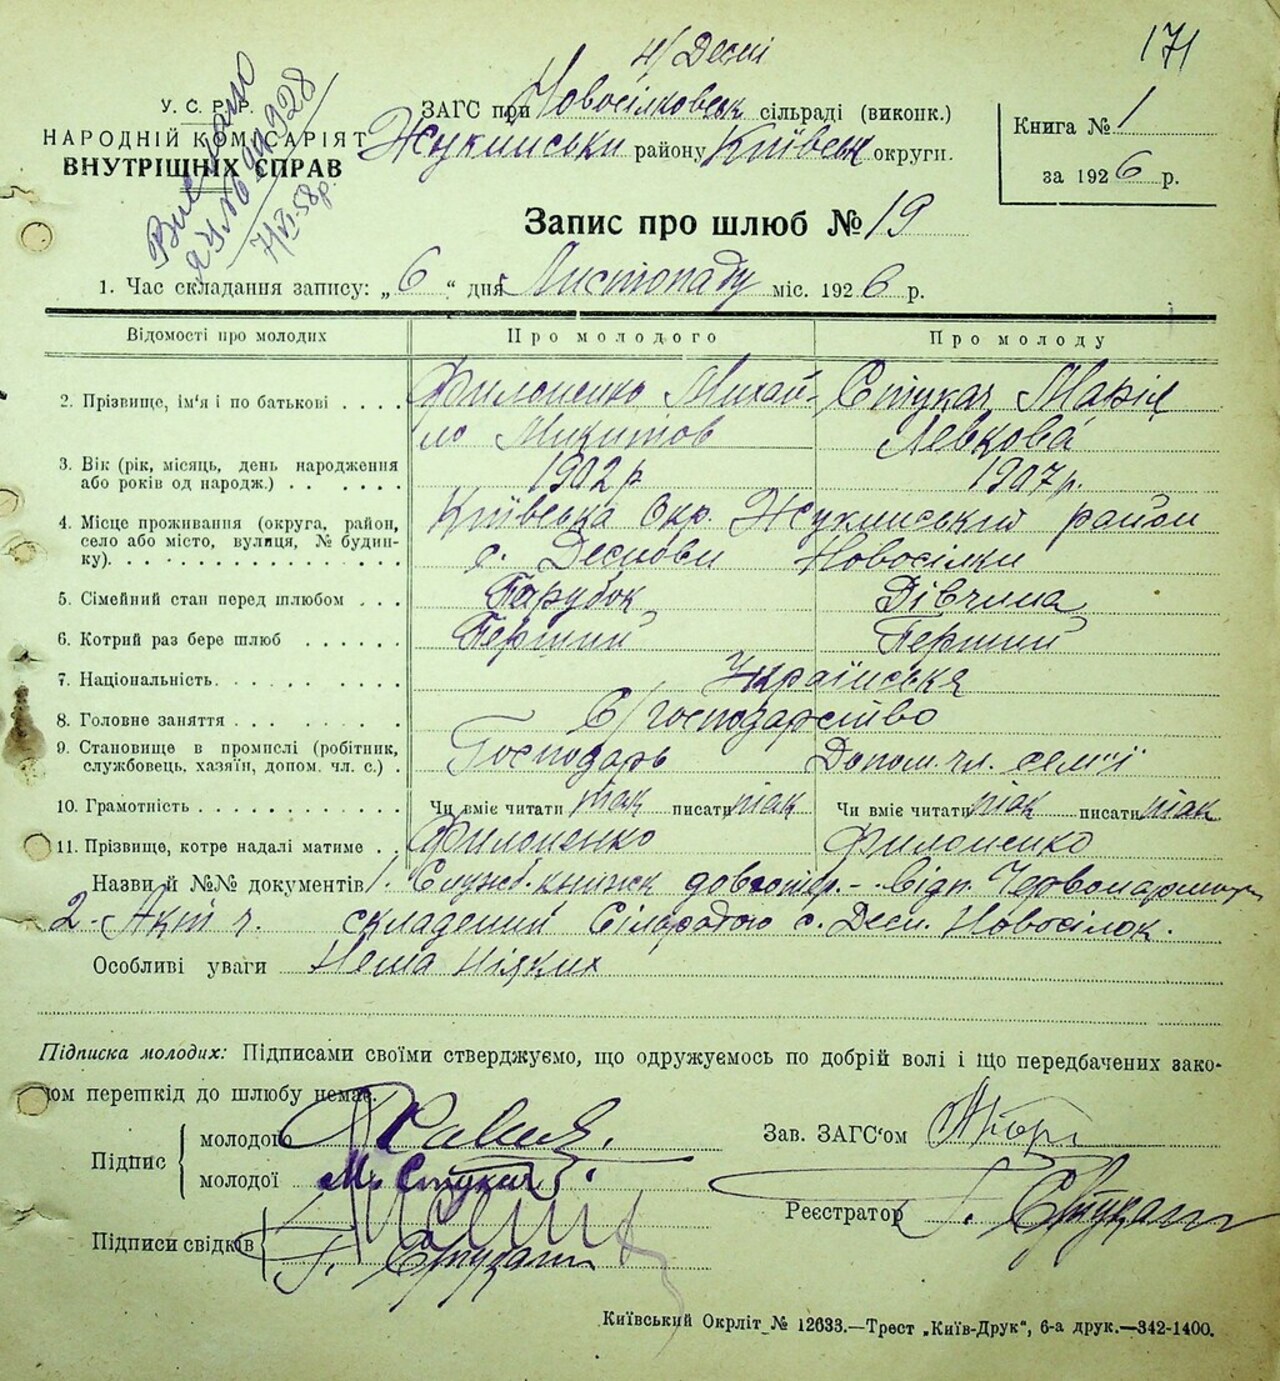 171
н/Десні
У. С. Р. Р.
НАРОДНІЙ КОМІСАРІЯТ
ВНУТРІШНІХ СПРАВ
Видано
7/VI-58р.
ЗАГС при Новосілковськ сільраді (виконк.)
Жукинськи району Київськ округи.
Книга № 1
за 1926 р.
Запис про шлюб № 19
1. Час складання запису: „6“ дня Листопаду міс. 1926 р.
Відомості про молодих Про молодого Про молоду
2. Прізвище, ім'я і по батькові .... Филоненко Михай- Стукач Марія
ло Микитов Левкова
3. Вік (рік, місяць, день народження 1902 р 1907 р.
або років од народж.) .. ....
4. Місце проживання (округа, район, Київська Окр. Жукинський район
село або місто, вулиця, № будин- с. Деснови Новосілки
ку)................
5. Сімейний стан перед шлюбом ... Парубок Дівчина
6. Котрий раз бере шлюб ...... Перший Перший
7. Національність.......... Українська
8. Головне заняття ......... С/господарство
9. Становище в промислі (робітник, Господарь Допом. чл. сем'ї
службовець, хазяїн, допом. чл. с.) .
10. Грамотність ........... Чи вміє читати так писати так Чи вміє читати так писати так
11. Прізвище, котре надалі матиме .. Филоненко Филоненко
Назви й №№ документів 1. Служб. книжк довготер. - Відп. Червоноармєй
2. Акт ч. складений Сільрадою с. Десн. Новосілок.
Особливі уваги Нема Ніяких
Підписка молодих: Підписами своїми стверджуємо, що одружуємось по добрій волі і що передбачених зако-
ном перешкід до шлюбу немає.
Підпис молодого
молодої М. Стукач
Зав. ЗАГС'ом
Реєстратор Г. Стукач
Підписи свідків
Г. Стукач
Київський Окрліт № 12633.—Трест „Київ-Друк“, 6-а друк.—342-1400.